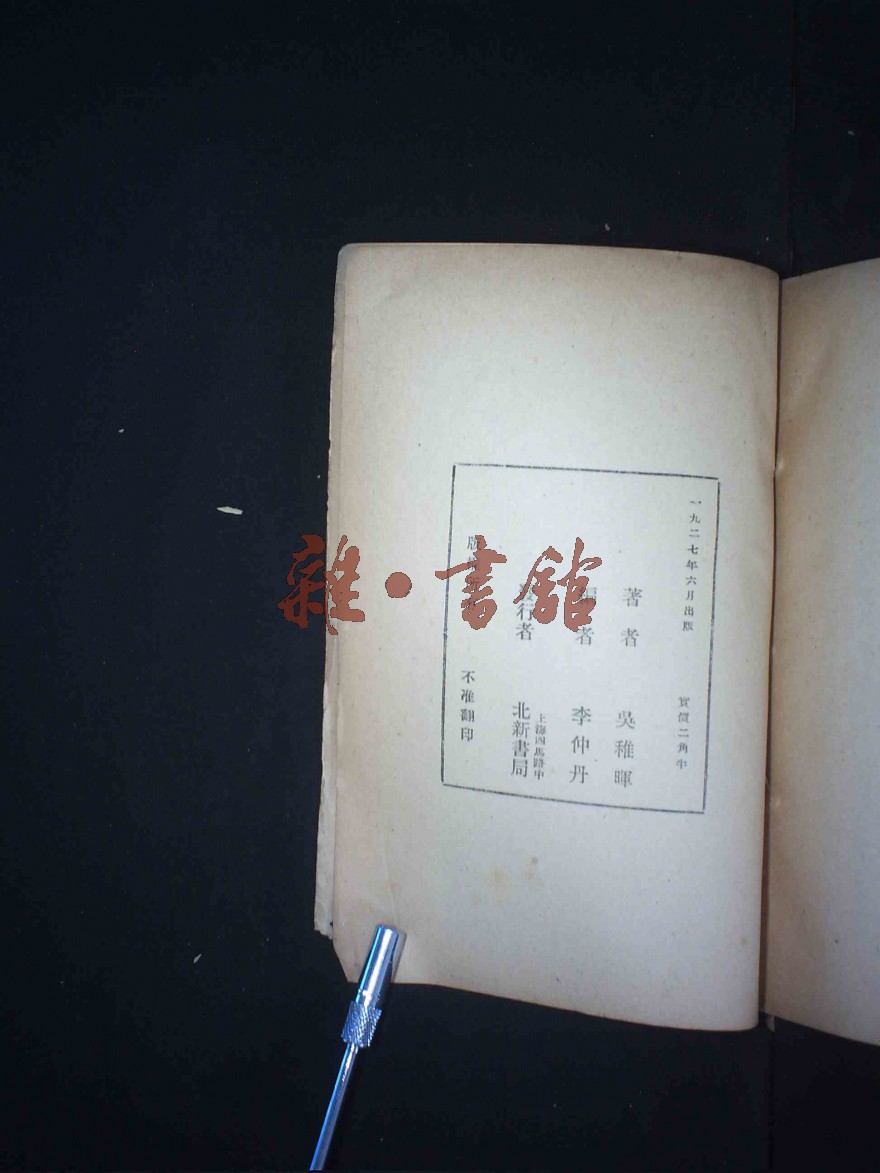 一九二七年六月出版
實價二角半
著者 吳稚暉
編者 李仲丹
發行者 上海四馬路中 北新書局
版 不准翻印
雜·書館